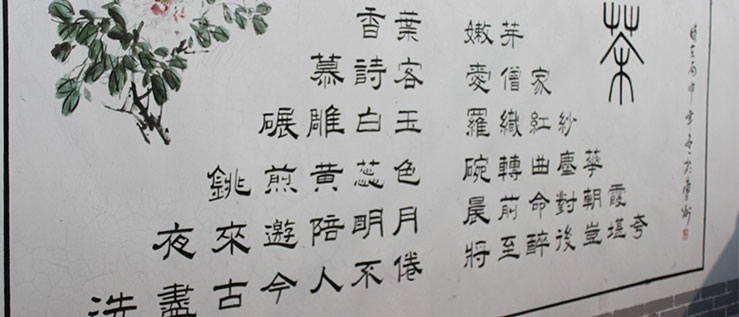 茶
香葉 嫩芽
慕詩客 愛僧家
碾雕白玉 羅織紅紗
銚煎黃蕊色 碗轉曲塵華
夜來邀陪明月 晨前命對朝霞
洗盡古今人不倦 將至醉後豈堪夸
時在丙申年冬於曹州